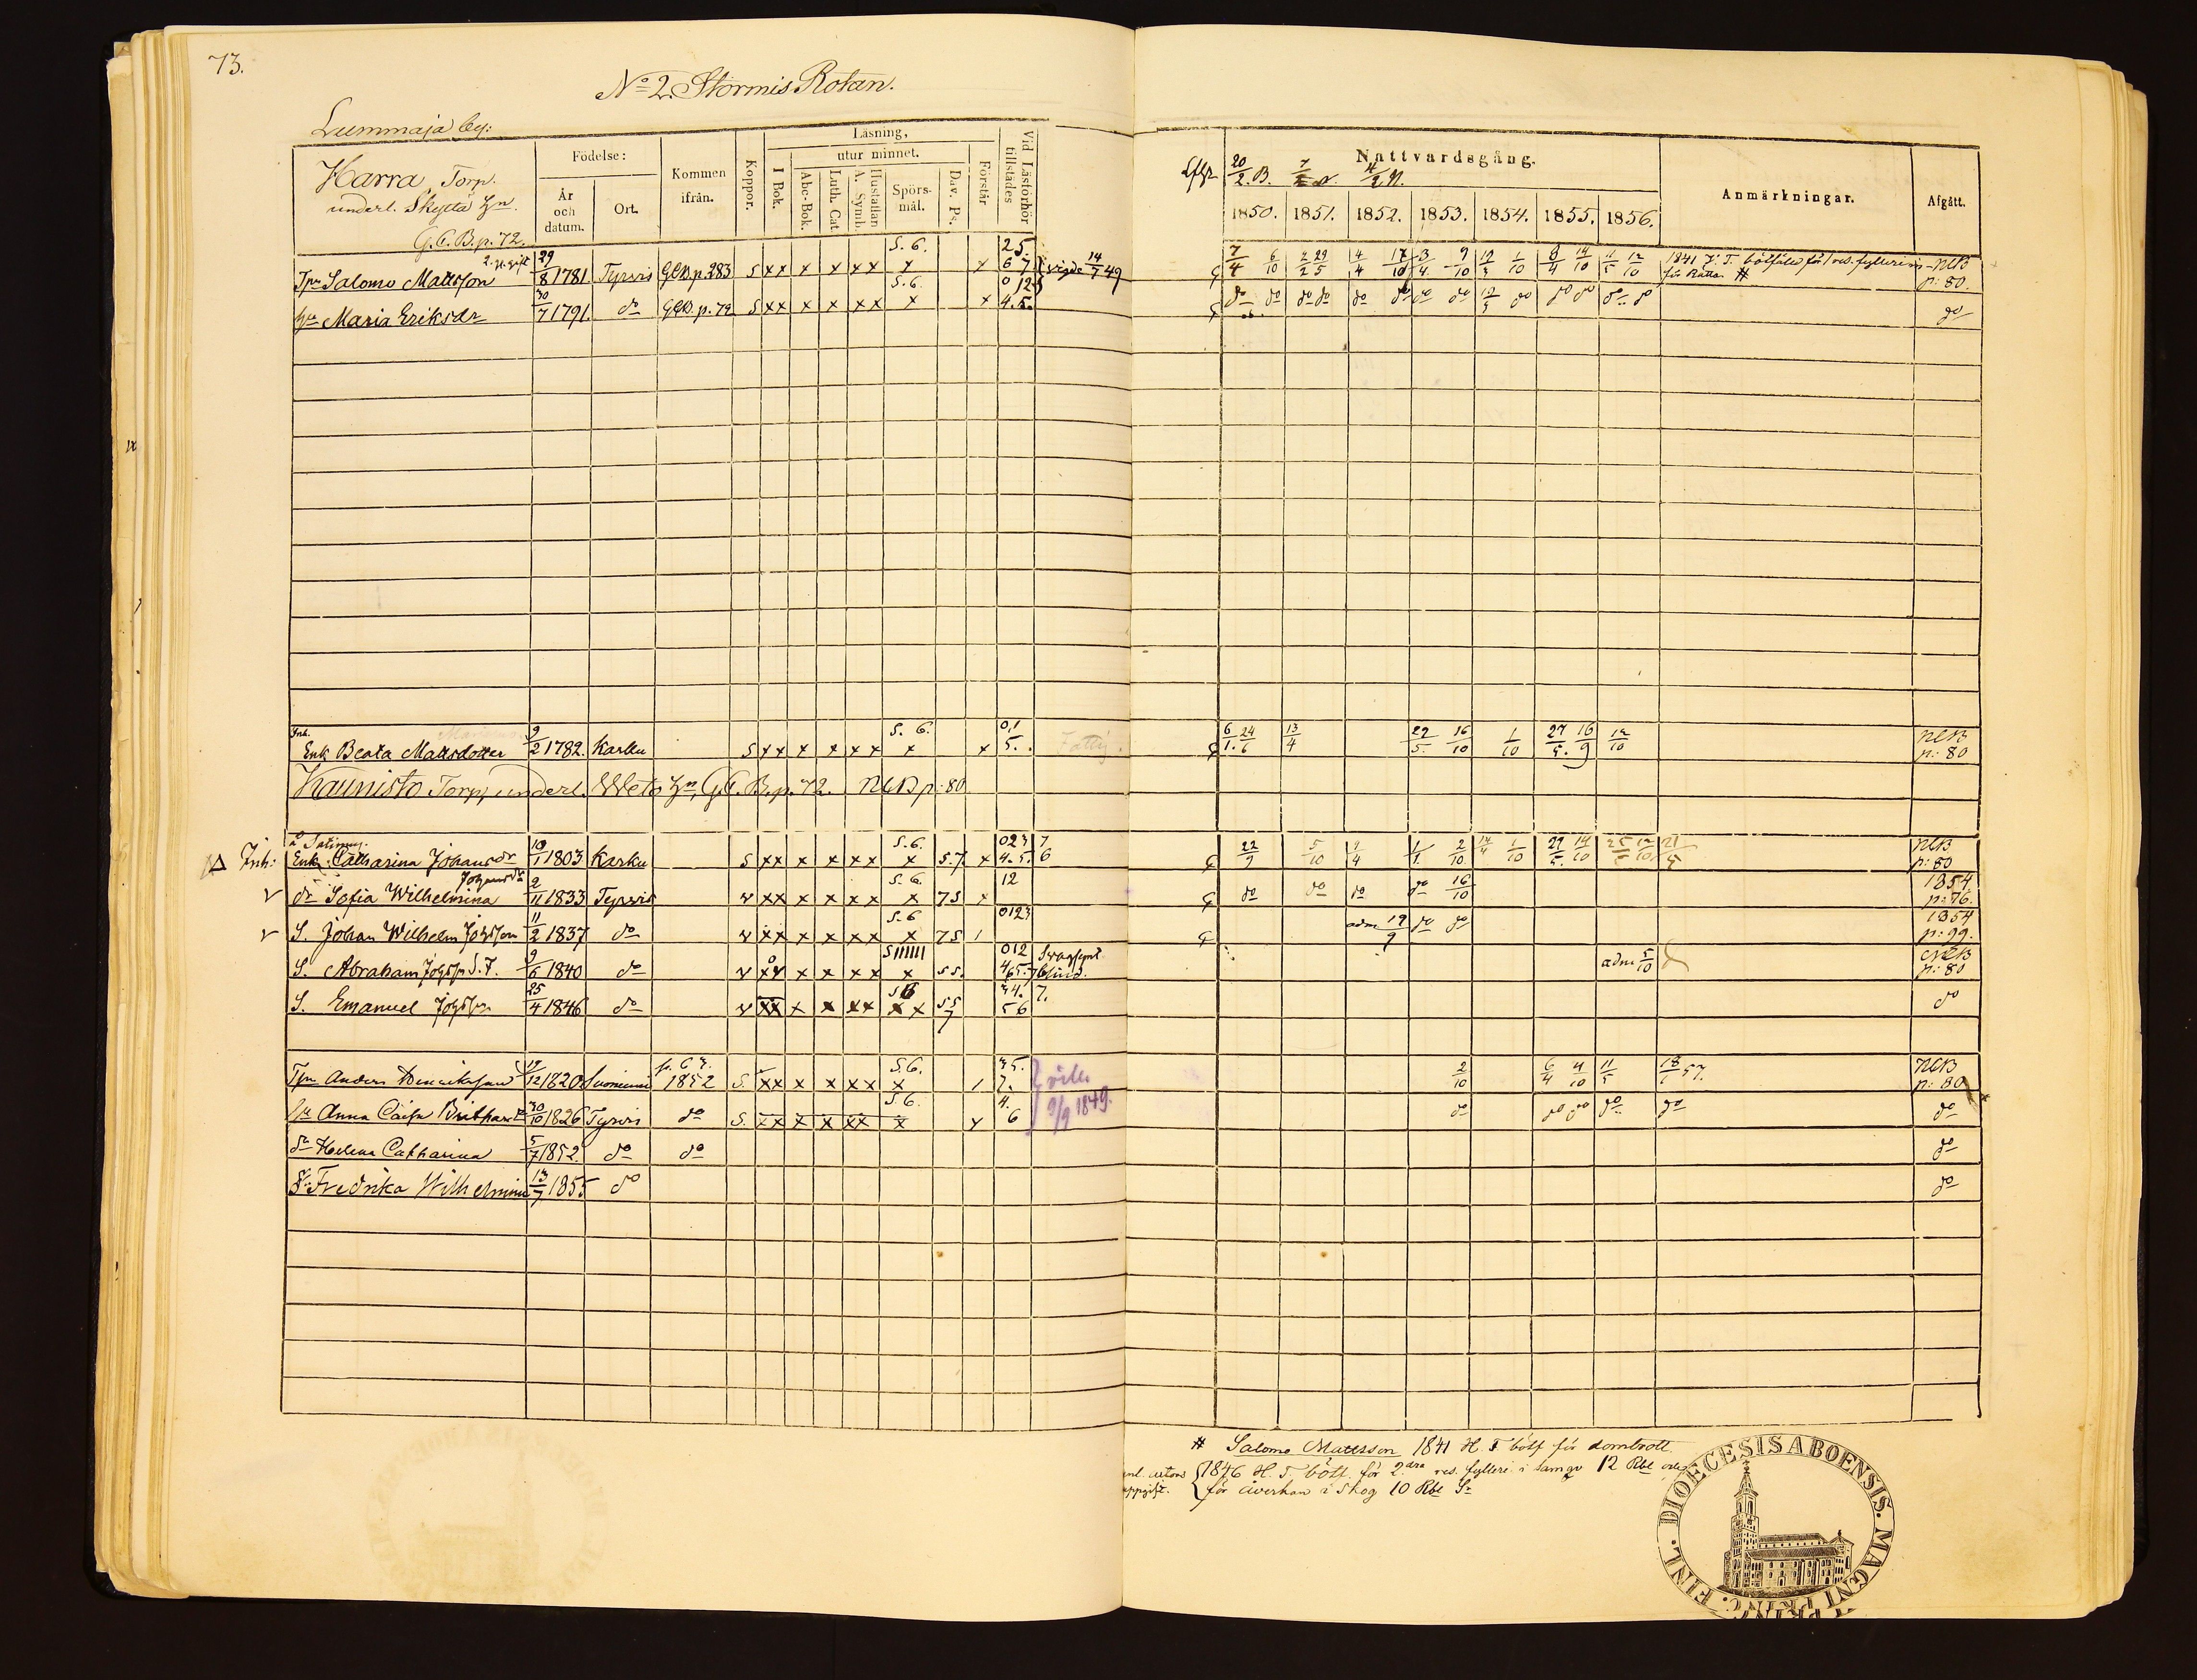 73.
No 2. Stormis Rotan.
Lummaja by:
Harra, Torp.
underl. Skyttä Hn.
G.C.B.p. 72.
Födelse:
År och datum.
Ort.
Kommen ifrån.
Koppor.
Läsning,
I Bok.
utur minnet.
Abc-Bok.
Luth. Cat.
A. Symb.
Hustaflan
Spörsmål.
Dav. Ps.
Förstår
Vid Läsförhör tillstädes
Nattvardsgång.
20/2. B.
1850. 1851. 1852. 1853. 1854. 1855. 1856.
Anmärkningar.
Afgått.
2. g. gift
Tpr Salomo Mattsson 29/8 1781. Tyrvis GCB.p.283 S xx x x xx S. 6. x x 25 67 vigde 14/7 49
7/4 6/10 4/4 17/10 3/4 9/10 1/10 8/4 14/10 12/10 1841 H. T. bötfäld för 1 res. fylleri NCB p: 80.
för Rätta #
Hu Maria Eriksdr 30/7 1791. do GCB.p.72 S xx x x xx S.6. x x 012 4.5.
do do do do do do do do do do do do do do
Inh.
Enk Beata Mattsdotter 9/2 1782. Karku S xx x x xx S. 6. x x 01 5. Fattig.
6/1. 24/6 13/4 22/5. 16/10 1/10 27/5. 16/9 12/10 NCB p: 80
Kaunisto Torp, underl. Weto Hn, G.C.B.p. 72. NCB p: 80
Inh: Enk. Catharina Johansdr 1803 Karku S xx x x xx S.6. x S.7. x 023 4.5. 7 6
22/9 5/10 1/1. 2/10 1/10 27/5. 14/10 NCB p: 80
dr Sofia Wilhelmina Johansdr 2/11 1833 Tyrvis v xx x x xx S.6. x 7S x 12
do do do do 16/10 1854. p: 76.
S. Johan Wilhelm Johsson 11/2 1837 do v xx x x xx S.6 x 7S 1 0123
adm 19/9 do do 1854 p: 99.
S. Abraham Johsson S.F. 9/6 1840 do v xx x x xx x SS. 012 465.7 Svagsynt blind.
adm 5/10 NCB p: 80
S. Emanuel Johsson 25/4 1846 do v xx x x xx x x SS 7 34. 56 7.
do
Tpr Anders Henriksson 12 1820 Suoniemi 1852 S. xx x x xx S.6. x 1 35. 7. vilm 9/9 1849.
2/10 6/4 4/10 11/5 18/1 57. NCB p: 80
Hu Anna Caisa 30/10 1826 Tyrvis do S. xx x x xx S6. x x 4. 6
do do do do do do
dr Helena Catharina 5/7 1852. do do do
dr Fredrika Wilhelmina 13/7 1855 do do
# Salomo Mattsson 1841 H. T bött för dombrott
1846 H. T. bött. för 2dra res. fylleri i samqv 12 Rbl och
för åverkan i skog 10 Rbl Sr
uppgift.
DIOECESIS ABOENSIS. MAGNI PRINC. FINL.